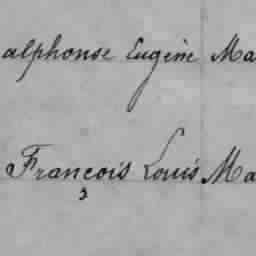 alphonse Eugène Ma
François Louis Ma